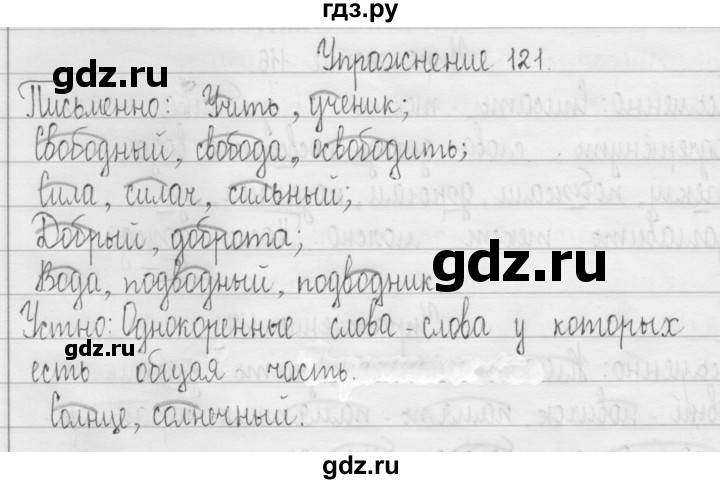 гдз.ру
Упражнение 121.
gdz.ru
Письменно: Учить, ученик;
Свободный, свобода, освободить;
Сила, силач, сильный;
Добрый, доброта;
Вода, подводный, подводник
gdz.ru
Устно: Однокоренные слова - слова у которых
gdz.ru
есть общая часть.
Солнце, солнечный.
gdz.ru